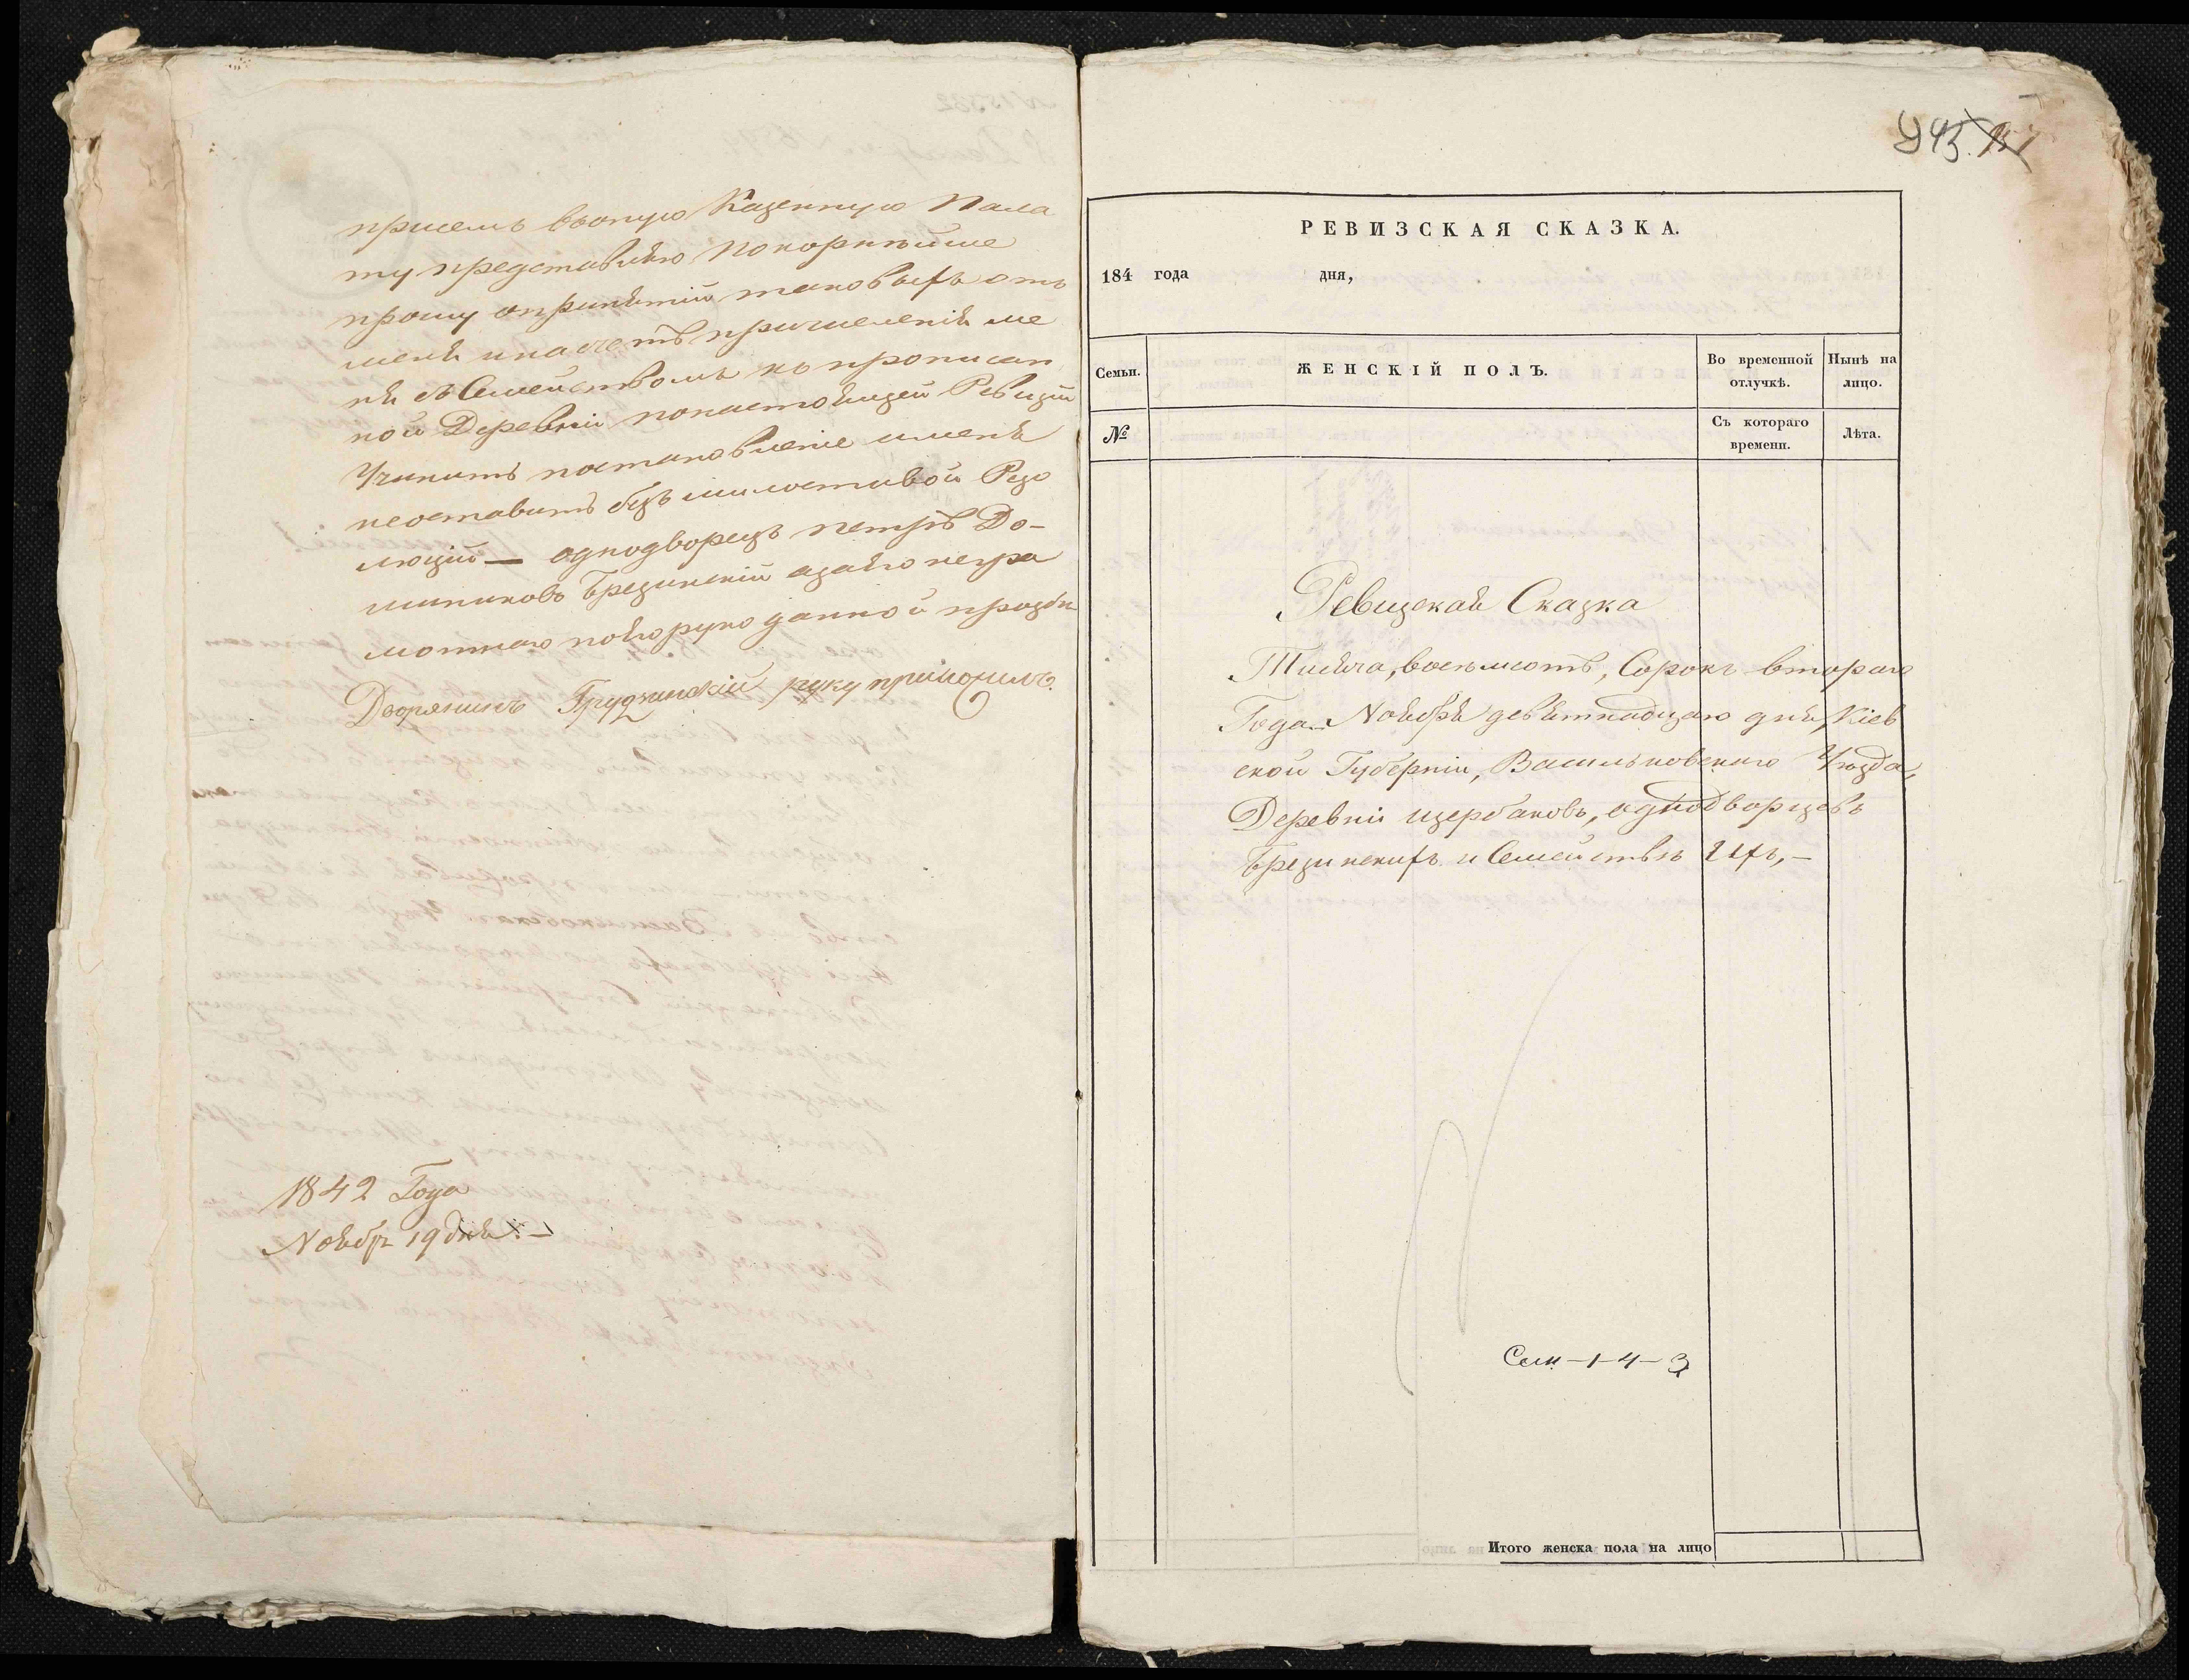 присемъ вьоную Казенную Пала
ту представляю покорнѣйше
прошу опринятій таковыхъ отъ
меня инасчетъ причисленія ме
ня съ Семействомъ къ прописан
ной Деревни понастоящей Ревизіи
Учинить постановленіе именя
неоставить безъ милостивой Резо
люціи — однодворецъ петръ До-
миниковъ Брезинскій азанего негра
мотнаго поегорукоданной прозби
Дворянинъ Грудзинскій руку приложилъ.
1842 Года
Ноября 19 дня
РЕВИЗСКАЯ СКАЗКА.
184 года дня,
Семьи.
ЖЕНСКІЙ ПОЛЪ.
Во временной отлучкѣ.
Нынѣ на лицо.
№
Съ котораго времени.
Лѣта.
Ревизская Сказка
Тисяча, восемьсотъ, Сорокъ втораго
Года Ноября девятнадцаго дня, Кіев
ской Губерніи, Васильковскаго Уѣзда,
Деревни щербаковъ, однодворцовъ
Брезинскихъ и Семействъ Ихъ, —
Сем — 1 - 4 — 3
Итого женска пола на лицо